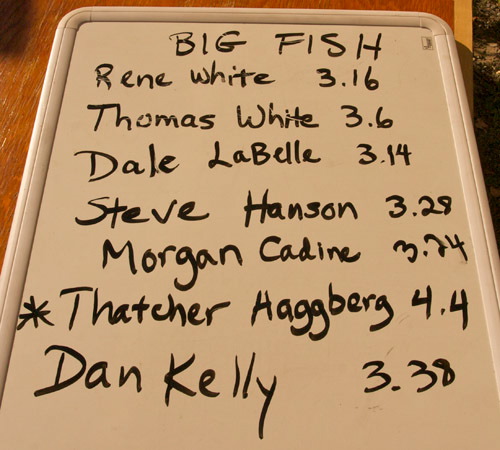 BIG FISH
Rene White 3.16
Thomas White 3.6
Dale LaBelle 3.14
Steve Hanson 3.28
Morgan Cadine 3.74
* Thatcher Haggberg 4.4
Dan Kelly 3.38